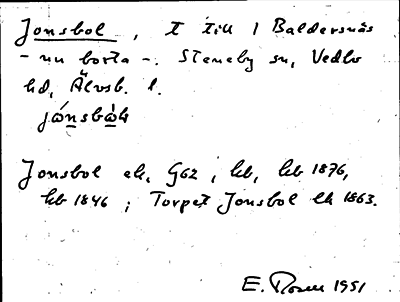 Jonsbol, t till 1 Baldersnäs
- nu borta -. Steneby sn, Vedbo
hd, Älvsb. l.
Jonsbol ek, G62, hb, hb 1876,
hb 1846; Torpet Jonsbol lk 1863.
E. Rosen 1951